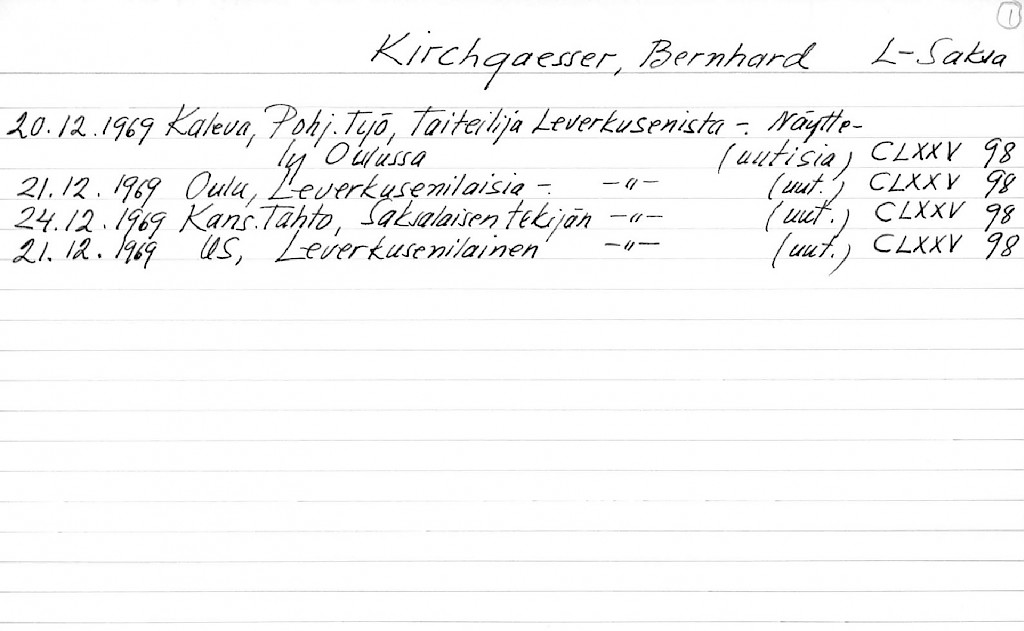 1
Kirchgaesser, Bernhard L-Saksa
20.12.1969 Kaleva, Pohj. Työ, Taiteilija Leverkusenista -. Näytte-
ly Oulussa (uutisia) CLXXV 98
21.12.1969 Oulu, Leverkusenilaisia -. -"- (uut.) CLXXV 98
24.12.1969 Kans. Tahto, Saksalaisen tekijän -"- (uut.) CLXXV 98
21.12.1969 US, Leverkusenilainen -"- (uut.) CLXXV 98